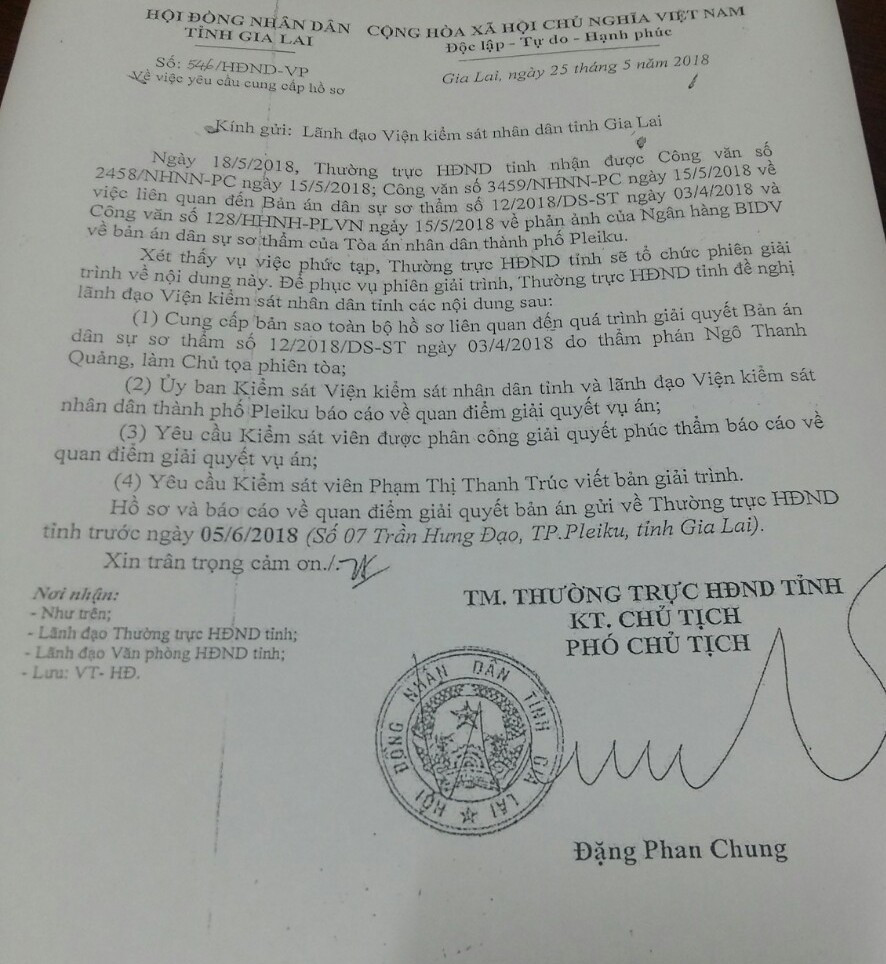 HỘI ĐỒNG NHÂN DÂN
TỈNH GIA LAI
CỘNG HÒA XÃ HỘI CHỦ NGHĨA VIỆT NAM
Độc lập - Tự do - Hạnh phúc
Số: 546/HĐND-VP
Về việc yêu cầu cung cấp hồ sơ
Gia Lai, ngày 25 tháng 5 năm 2018
Kính gửi: Lãnh đạo Viện kiểm sát nhân dân tỉnh Gia Lai
Ngày 18/5/2018, Thường trực HĐND tỉnh nhận được Công văn số
2458/NHNN-PC ngày 15/5/2018; Công văn số 3459/NHNN-PC ngày 15/5/2018 về
việc liên quan đến Bản án dân sự sơ thẩm số 12/2018/DS-ST ngày 03/4/2018 và
Công văn số 128/HHNH-PLVN ngày 15/5/2018 về phản ảnh của Ngân hàng BIDV
về bản án dân sự sơ thẩm của Tòa án nhân dân thành phố Pleiku.
Xét thấy vụ việc phức tạp, Thường trực HĐND tỉnh sẽ tổ chức phiên giải
trình về nội dung này. Để phục vụ phiên giải trình, Thường trực HĐND tỉnh đề nghị
lãnh đạo Viện kiểm sát nhân dân tỉnh các nội dung sau:
(1) Cung cấp bản sao toàn bộ hồ sơ liên quan đến quá trình giải quyết Bản án
dân sự sơ thẩm số 12/2018/DS-ST ngày 03/4/2018 do thẩm phán Ngô Thanh
Quảng, làm Chủ tọa phiên tòa;
(2) Ủy ban Kiểm sát Viện kiểm sát nhân dân tỉnh và lãnh đạo Viện kiểm sát
nhân dân thành phố Pleiku báo cáo về quan điểm giải quyết vụ án;
(3) Yêu cầu Kiểm sát viên được phân công giải quyết phúc thẩm báo cáo về
quan điểm giải quyết vụ án;
(4) Yêu cầu Kiểm sát viên Phạm Thị Thanh Trúc viết bản giải trình.
Hồ sơ và báo cáo về quan điểm giải quyết bản án gửi về Thường trực HĐND
tỉnh trước ngày 05/6/2018 (Số 07 Trần Hưng Đạo, TP.Pleiku, tỉnh Gia Lai).
Xin trân trọng cảm ơn./.
Nơi nhận:
- Như trên;
- Lãnh đạo Thường trực HĐND tỉnh;
- Lãnh đạo Văn phòng HĐND tỉnh;
- Lưu: VT- HĐ.
TM. THƯỜNG TRỰC HĐND TỈNH
KT. CHỦ TỊCH
PHÓ CHỦ TỊCH
HỘI ĐỒNG NHÂN DÂN TỈNH GIA LAI
Đặng Phan Chung